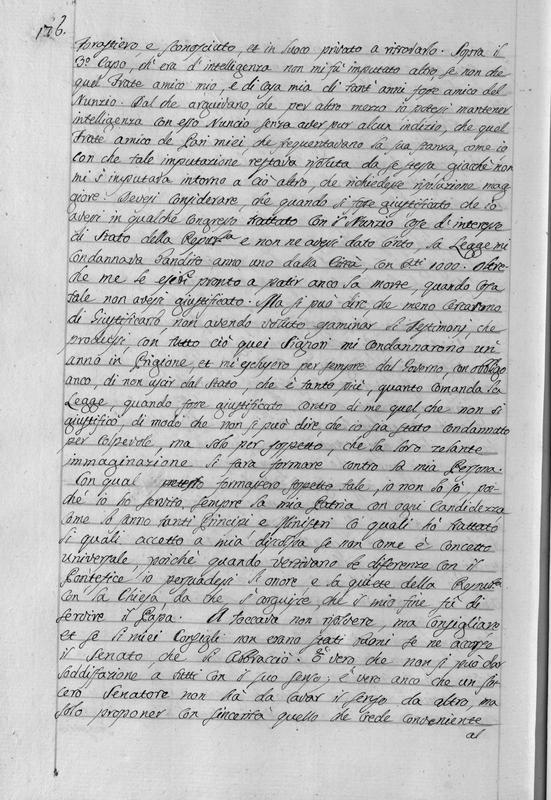 176.
forastiero e sconosciuto, et in luoco privato a ritrovarlo. Sopra il
3.º Capo, di era d'intelligenza non mi fù imputato altro, se non che
quel Frate amico mio, e di casa mia di tant'anni fosse amico del
Nunzio. Dal che arguivano, che per altro mezzo io potessi mantener
intelligenza con esso Nuncio senza aver pur alcun indizio, che quel
Frate amico de Pari miei che frequentavano la sua stanza, come io
con che tale imputazione restava risoluta da se stessa giacchè non
mi s'imputava intorno a ciò altro, che richiedesse risoluzione mag
giore. Devesi considerare, che quando si fosse giustificato che io
avessi in qualche congresso trattato con il Nunzio cose d'interesse
di Stato della Repub.ca e non ne avessi dato conto, la Legge mi
condannava bandito anno uno dalla Città, con 1000. Oltre
che me le pronto a patir anco la morte, quando cosa
tale non avessi giustificato. Ma si può dire che meno cercarono
di Giustificarlo non avendo voluto esaminar li Testimonj, che
produssi, con tutto ciò quei Signori mi condannarono un'
anno in Prigione, et mi esclusero per sempre dal Governo, con obbligo
anco, di non uscir dal Stato, che è tanto più, quanto comanda la
Legge, quando fosse giustificato contro di me quel che non si
giustificò, di modo che non si può dire che io sia stato condannato
per colpevole, ma solo per sospetto, che la loro zelante
immaginazione si farà formare contro la mia Persona.
Con qual pretesto formassero sospetto tale, io non lo sò, poi-
chè io ho servito sempre la mia Patria con ogni Candidezza
come lo sanno tanti Principi e Ministri co quali hò trattato
li quali accetto a mia discolpa se non come è concetto
universale, poichè quando vertivano le diferenze con il
Pontefice io persuadessi l'onore e la quiete della Repub.ca
con la Chiesa da che s'arguisce, che il mio fine fù di
servire il Papa. A toccava non risolvere, ma consigliare
et se li miei Consigli non erano stati buoni se ne accorse
il Senato, che li abbracciò. È vero, che non si può dar
soddisfazione a tutti con il suo senso; è vero anco che un sin
cero Senatore non hà da cavar il senso da altro, ma
solo proponer con sincerità quello che crede conveniente
al